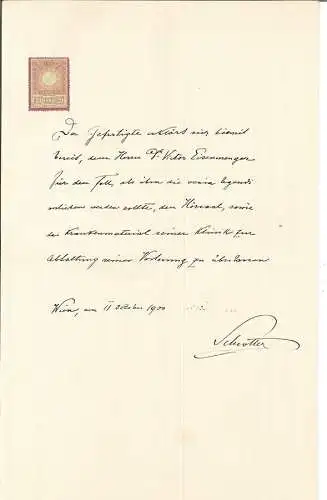 Der Gefertigte erklärt sich hiemit
bereit, dem Herrn Dr Victor Eisenmenger
für den Fall, als ihm die venia legendi
verliehen werden sollte, den Hörsaal, sowie
das Krankenmaterial seiner Klinik zur
Abhaltung seiner Vorlesung zu überlassen
Wien, am 11 October 1900
Schrötter